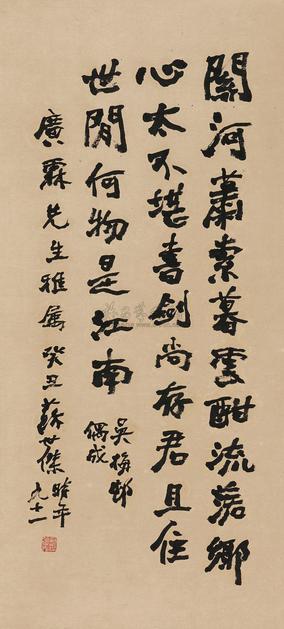 關河蕭索暮雲酣流落鄉
心太不堪書劍尚存君且住
世閒何物是江南
吳梅邨
偶成
廣霖先生雅屬癸丑蘇世傑時年
九十一